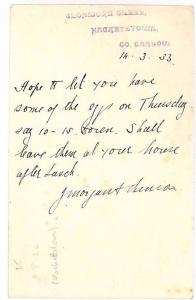 HACKETSTOWN,
CO. CARLOW
14-3.33
Hope to let you have
some of the eggs on Thursday
say 10-15 Dozen. Shall
leave them at your house
after Lunch.